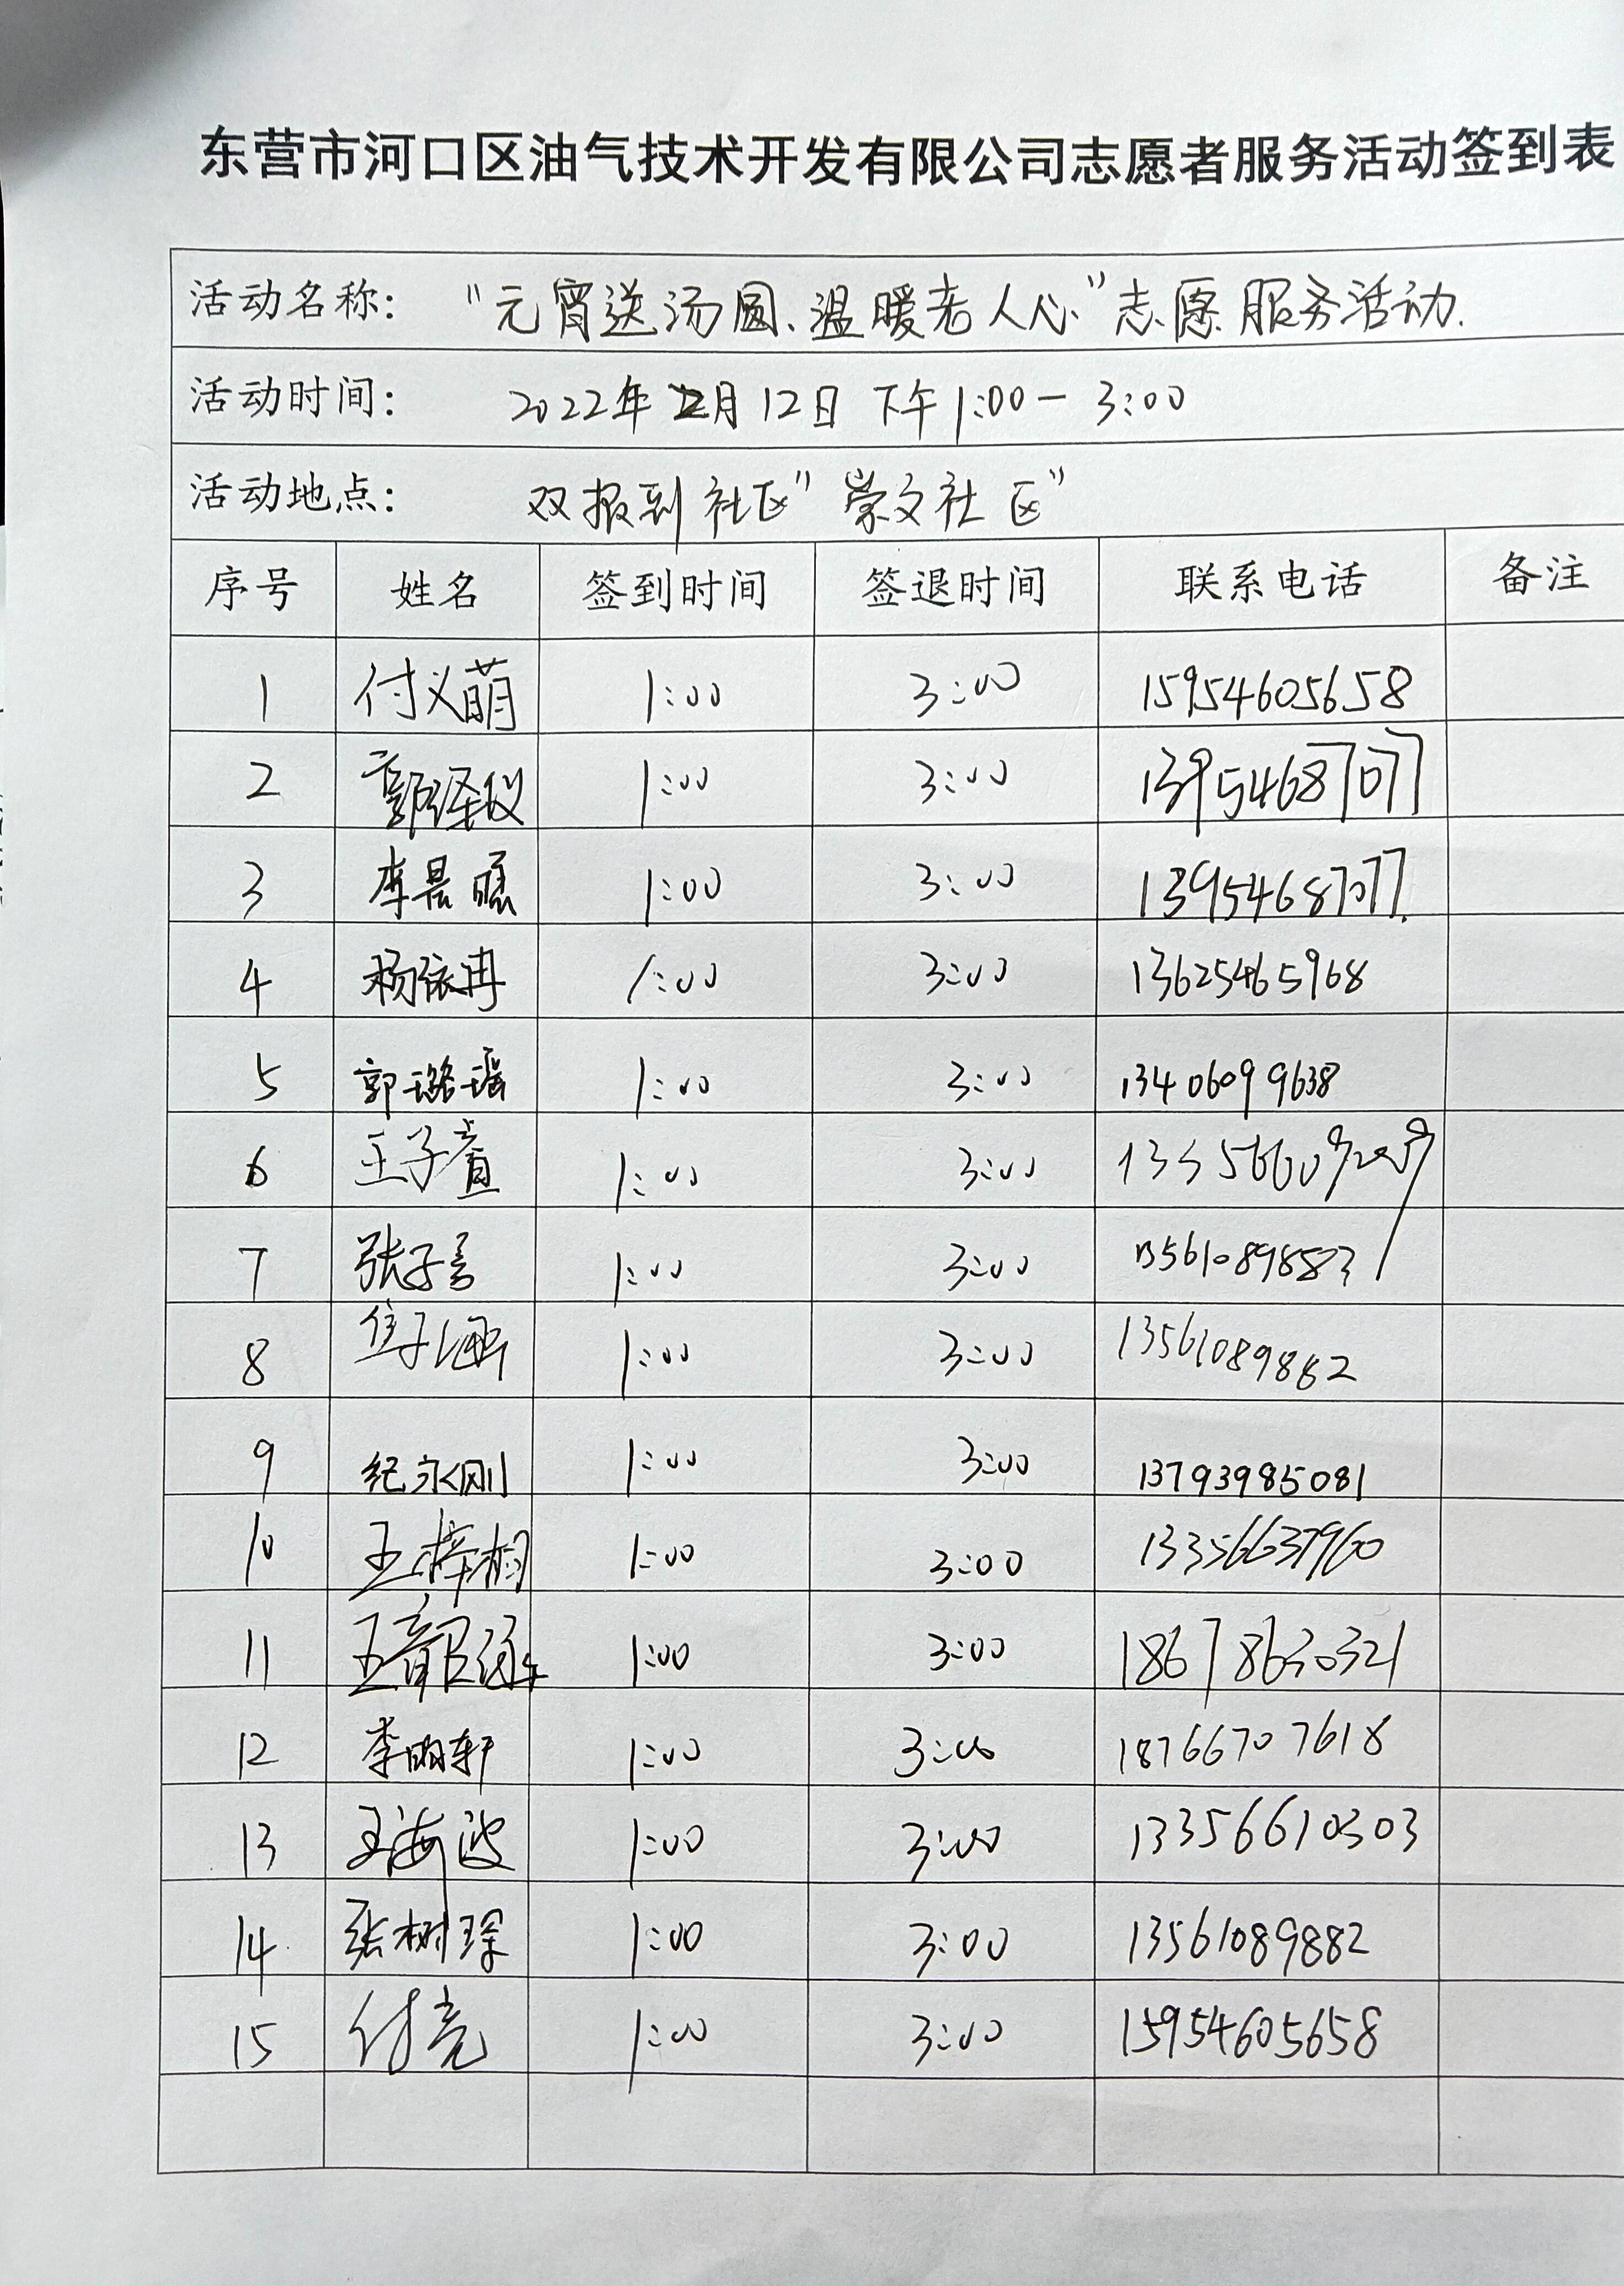 东营市河口区油气技术开发有限公司志愿者服务活动签到表
活动名称： “元宵送汤圆、温暖老人心”志愿服务活动.
活动时间： 2022年2月12日 下午1:00－3:00
活动地点： 双报到社区“崇文社区”
序号 姓名 签到时间 签退时间 联系电话 备注
1 付义萌 1:00 3:00 15954605658
2 郭泽仪 1:00 3:00 13954687077
3 李晨曦 1:00 3:00 13954687077.
4 杨依冉 1:00 3:00 13625465968
5 郭璐瑶 1:00 3:00 13406099638
6 王子萱 1:00 3:00
7 张子言 1:00 3:00
8 1:00 3:00 13561089882
9 纪永刚 1:00 3:00 13793985081
10 王梓桐 1:00 3:00 13356637960
11 王韶涵 1:00 3:00 18678630321
12 李明轩 1:00 3:00 18766707618
13 王海波 1:00 3:00 13356610303
14 张树琛 1:00 3:00 13561089882
15 付亮 1:00 3:00 15954605658